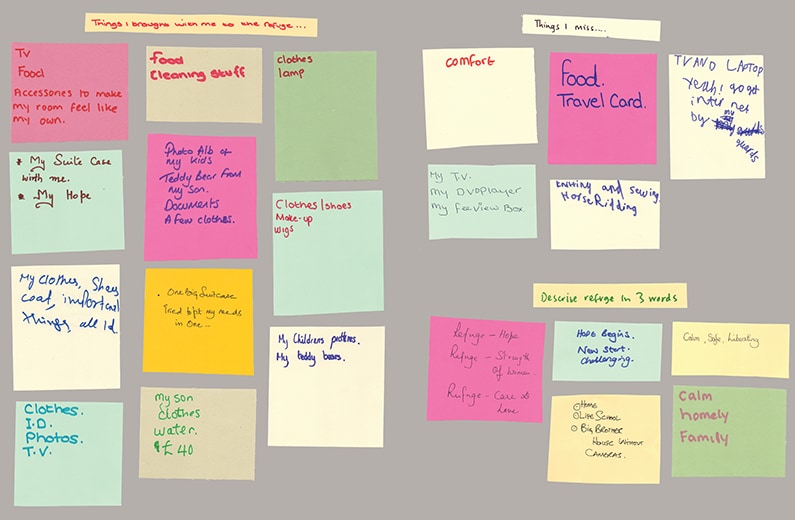 Things I brought with me to the refuge...
TV
Food
Accessories to make
my room feel like
my own.
Food
Cleaning stuff
clothes
lamp
My Suitcase
with me.
My Hope
Photo Alb of
my kids
Teddy Bear from
my son.
Documents
A few clothes.
Clothes/shoes
Make-up
wigs
My clothes, Shoes
coat, important
things, all Id
One big suitcase
Tried to fit my needs
in one...
My Childrens
My teddy bears.
Clothes.
I.D.
Photos.
T.V.
my son
clothes
water.
£40
Things I miss....
comfort
Food.
Travel Card.
TV AND LAPTOP
Yeah! go get
internet
by my
guards
My T.V.
My DVDPlayer
My FeeView Box
and sewing.
Horse Ridding
Describe refuge in 3 words
Refuge - Hope
Refuge - Strength
Of Women
Refuge - Care &
Love
Hope Begins.
New Start.
Challenging.
Calm, Safe, Liberating
Home
Life School
Big Brother
House Without
Cameras.
Calm
homely
Family